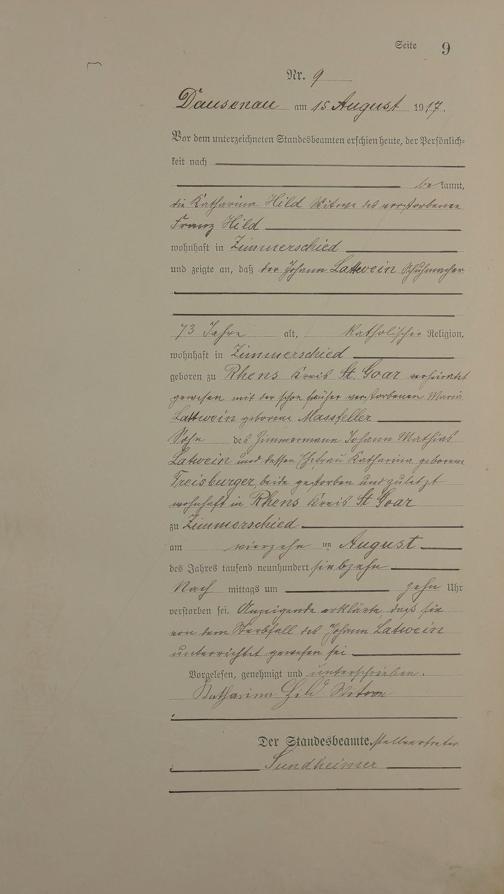 Seite 9
Nr. 9
Dausenau am 15 August 1917.
Vor dem unterzeichneten Standesbeamten erschien heute, der Persönlich-
keit nach
be kannt,
die Katharina Hild Witwe des verstorbenen
Franz Hild
wohnhaft in Zimmerschied
und zeigte an, daß der Johann Latwein Schuhmacher
73 Jahre alt, Katholischer Religion,
wohnhaft in Zimmerschied
geboren zu Rhens Kreis St. Goar verheiratet
gewesen mit der schon früher verstorbenen Maria
Latwein geborene Massfeller
Sohn des Zimmermann Johann Mathias
Latwein und dessen Ehefrau Katharina geborene
Freisburger, beide gestorben und zuletzt
wohnhaft in Rhens Kreis St Goar
zu Zimmerschied
am vierzehn ten August
des Jahres tausend neunhundert siebzehn
Nach mittags um zehn Uhr
verstorben sei. Anzeigende erklärte daß sie
von dem Sterbfall des Johann Latwein
unterrichtet gewesen sei
Vorgelesen, genehmigt und unterschrieben.
Katharina Hild Witwe
Der Standesbeamte. Stellvertreter
Sundheimer